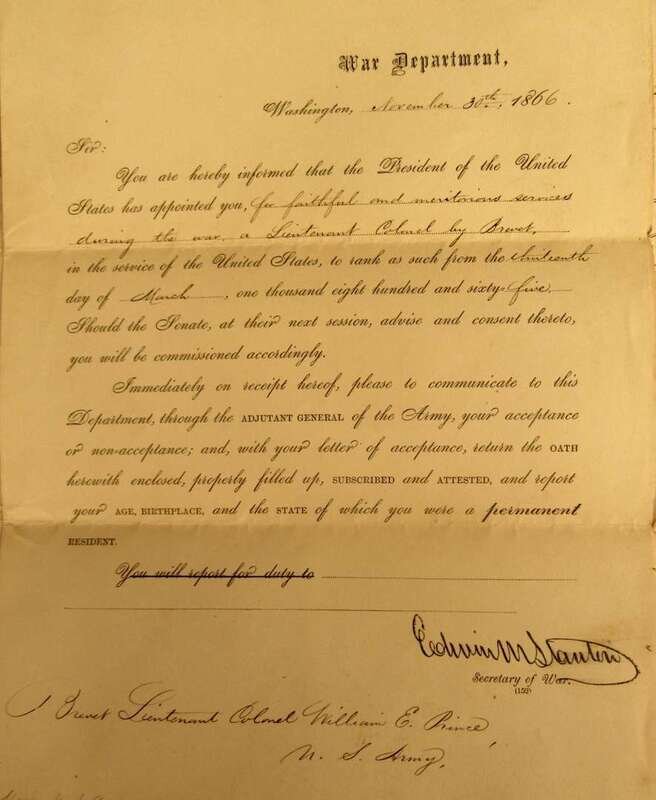 War Department,
Washington, November 30th, 1866.
Sir:
You are hereby informed that the President of the United
States has appointed you, for faithful and meritorious services
during the war, a Lieutenant Colonel by Brevet,
in the service of the United States, to rank as such from the thirteenth
day of March, one thousand eight hundred and sixty-five.
Should the Senate, at their next session, advise and consent thereto,
you will be commissioned accordingly.
Immediately on receipt hereof, please to communicate to this
Department, through the ADJUTANT GENERAL of the Army, your acceptance
or non-acceptance; and, with your letter of acceptance, return the OATH
herewith enclosed, properly filled up, SUBSCRIBED and ATTESTED, and report
your AGE, BIRTHPLACE, and the STATE of which you were a permanent
RESIDENT.
You will report for duty to
Edwin M Stanton
Secretary of War.
(152)
Brevet Lieutenant Colonel William E. Prince
U. S. Army,